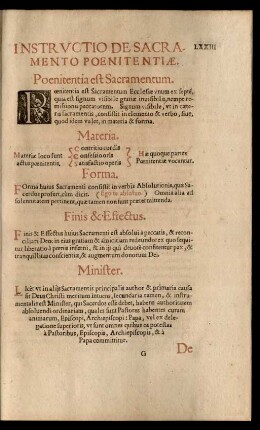 LXXIII
INSTRVCTIO DE SACRA-
MENTO POENITENTIÆ.
Poenitentia est Sacramentum.
Poenitentia est Sacramentum Ecclesiæ vnum ex septē,
quia est signum visibile gratiæ inuisibilis, nempe re-
missionis peccatorum. Signum visibile, vt in cæte-
ris sacramentis, consistit in elemento & verbo, siue,
quod idem valet, in materia & forma.
Materia.
Materiæ loco sunt
actus poenitentis,
contritio cordis
confessio oris
satisfactio operis
Hæ quoque partes
Poenitentiæ vocantur.
Forma.
Forma huius Sacramenti consistit in verbis Absolutionis, quæ Sa-
cerdos profert, cùm dicit: Ego te absoluo: Omnia alia ad
solennitatem pertinent, quæ tamen non sunt prætermittenda.
Finis & Effectus.
Finis & Effectus huius Sacramenti est absolui à peccatis, & recon-
ciliari Deo; in eius gratiam & amicitiam redeundo: ex quo sequi-
tur liberatio à poenis inferni, & in ijs qui deuotè confitentur pax, &
tranquillitas conscientiæ, & augmentum donorum Dei.
Minister.
Licet vt in alijs Sacramentis principalis author & primaria causa
sit Deus Christi meritum intuens, secundaria tamen, & instru-
mentalis est Minister, qui Sacerdos esse debet, habens authoritatem
absoluendi ordinariam, quales sunt Pastores habentes curam
animarum, Episcopi, Archiepiscopi: Papa, vel ex dele-
gatione superioris, vt sunt omnes quibus ea potestas
à Pastoribus, Episcopis, Archiepiscopis, & à
Papa committitur.
G
De